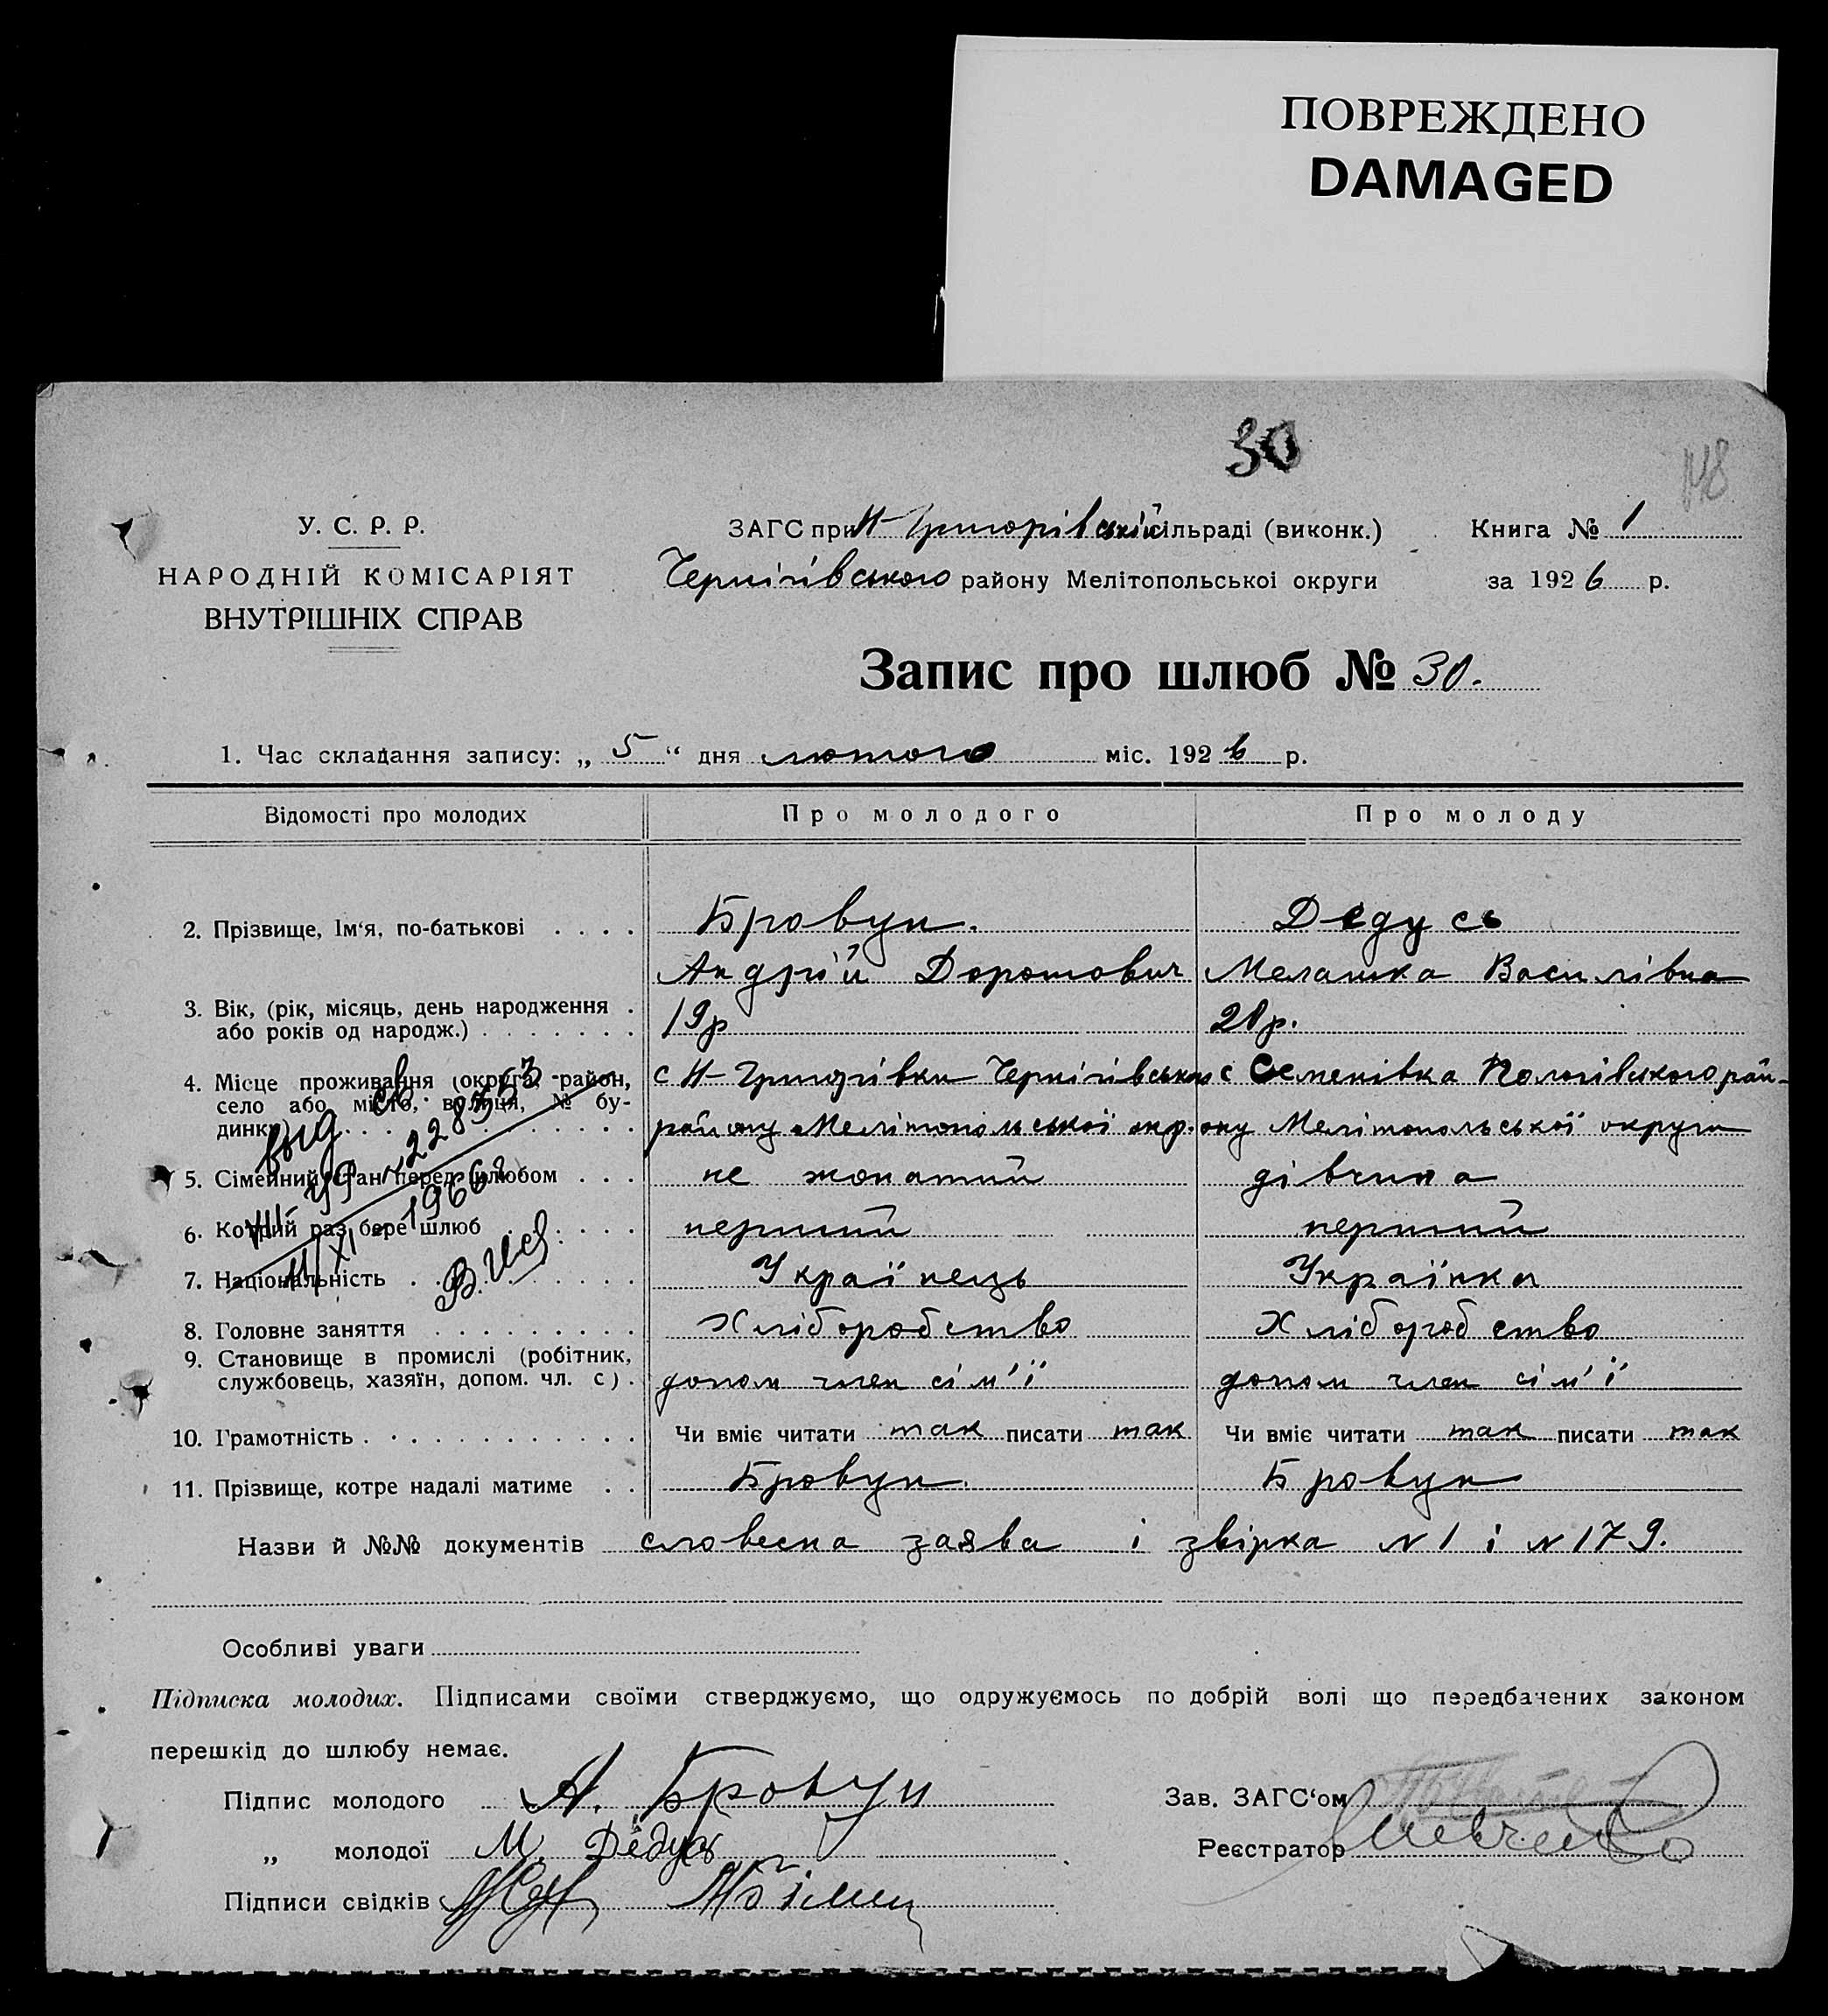 ПОВРЕЖДЕНО
DAMAGED
30
148
У. С. Р. Р.
НАРОДНІЙ КОМІСАРІЯТ
ВНУТРІШНІХ СПРАВ
ЗАГС при Н-Григорівській сільраді (виконк.)
Чернігівського району Мелітопольської округи
Книга № 1
за 1926 р.
Запис про шлюб № 30.
1. Час складання запису: „ 5 “ дня лютого міс. 1926 р.
Відомості про молодих Про молодого Про молоду
2. Прізвище, Ім'я, по-батькові . . . . Бровун. Дедусь
Андрій Доротович Мелашка Василівна
3. Вік, (рік, місяць, день народження . або років од народж.) . . . . . . . 19р 20р.
4. Місце проживання (округа, район, с Н-Григорівки Чернігівськ с Семенівка Пологівського рай-
село або місто, вулиця, № бу-
динку) району Мелітопольської окр. ону Мелітопольської округи
выд св.
VIII-УР 228553
11/XI 1966 г
5. Сімейний стан перед шлюбом . . . не жонатий дівчина
6. Котрий раз бере шлюб перший перший
7. Національність Українець Українка
8. Головне заняття . . . . . . . . . Хліборобство Хліборобство
9. Становище в промислі (робітник,
службовець, хазяїн, допом. чл. с) . допом член сім'ї допом член сім'ї
10. Грамотність . . . . . . . . . . . . Чи вміє читати так писати так Чи вміє читати так писати так
11. Прізвище, котре надалі матиме . . Бровун. Бровун
Назви й №№ документів словесна заява і звірка N 1 і N 179.
Особливі уваги
Підписка молодих. Підписами своїми стверджуємо, що одружуємось по добрій волі що передбачених законом
перешкід до шлюбу немає.
Підпис молодого А. Бровун Зав. ЗАГС'ом
„ молодої М. Дедусь Реєстратор Шевченко
Підписи свідків